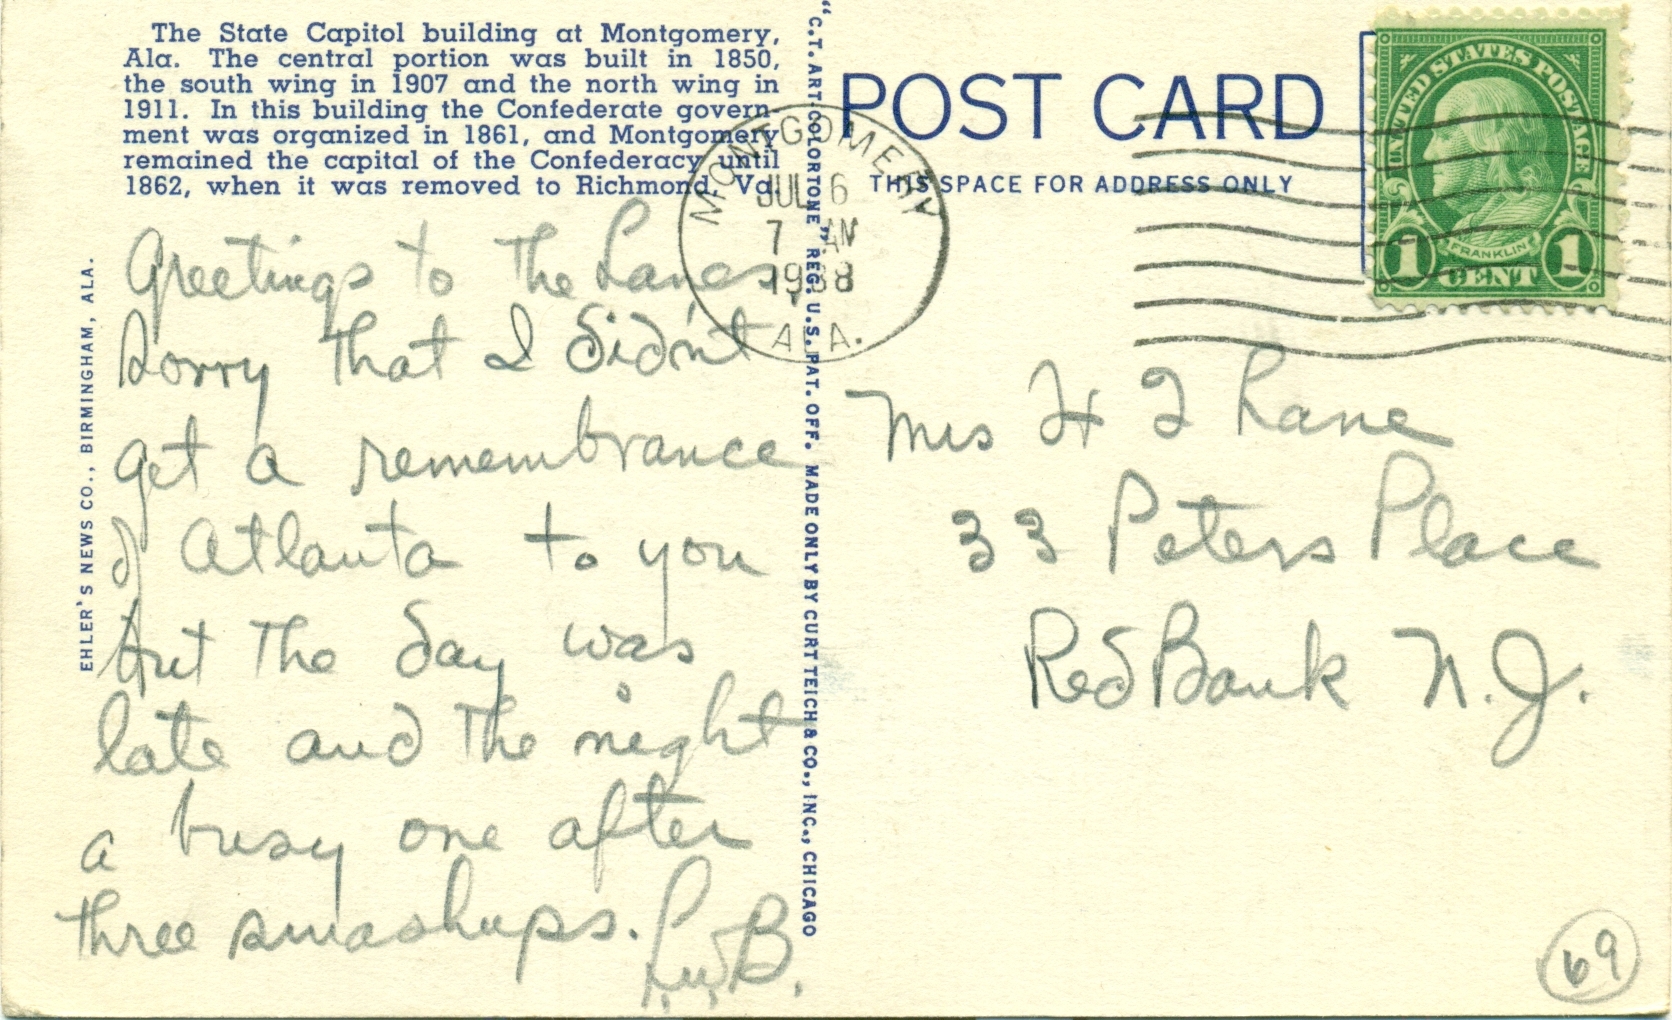 The State Capitol building at Montgomery,
Ala. The central portion was built in 1850,
the south wing in 1907 and the north wing in
1911. In this building the Confederate govern-
ment was organized in 1861, and Montgomery
remained the capital of the Confederacy until
1862, when it was removed to Richmond, Va.
EHLER'S NEWS CO., BIRMINGHAM, ALA.
Greetings to the Lanes,
Sorry that I didn't
get a remembrance
of Atlanta to you
but the day was
late and the night
a busy one after
three smashups.
L.W.B.
"C.T. ART-COLORTONE" REG. U.S. PAT. OFF. MADE ONLY BY CURT TEICH & CO., INC., CHICAGO
POST CARD
THIS SPACE FOR ADDRESS ONLY
MONTGOMERY
JUL 6
7 AM
1938
ALA.
UNITED STATES POSTAGE
FRANKLIN
1 CENT 1
Mrs H I Lane
33 Peters Place
Red Bank N.J.
69